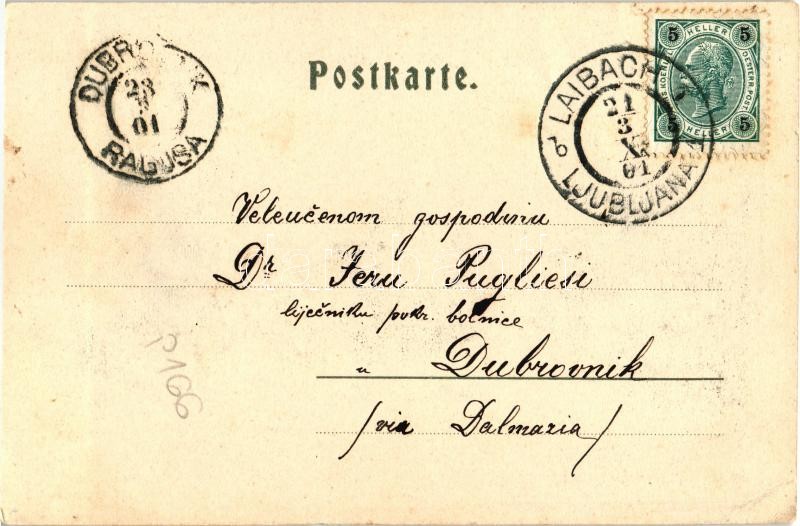 Postkarte.
DUBROVNIK
23
01
RAGUSA
LAIBACH 1
21
3
X
01
LJUBLJANA 1
5 HELLER 5
5 HELLER 5
Veleučenom gospodinu
Dr Jeru Pugliesi
liječniku pokr. bolnice
u Dubrovnik
/via Dalmazia/
P166